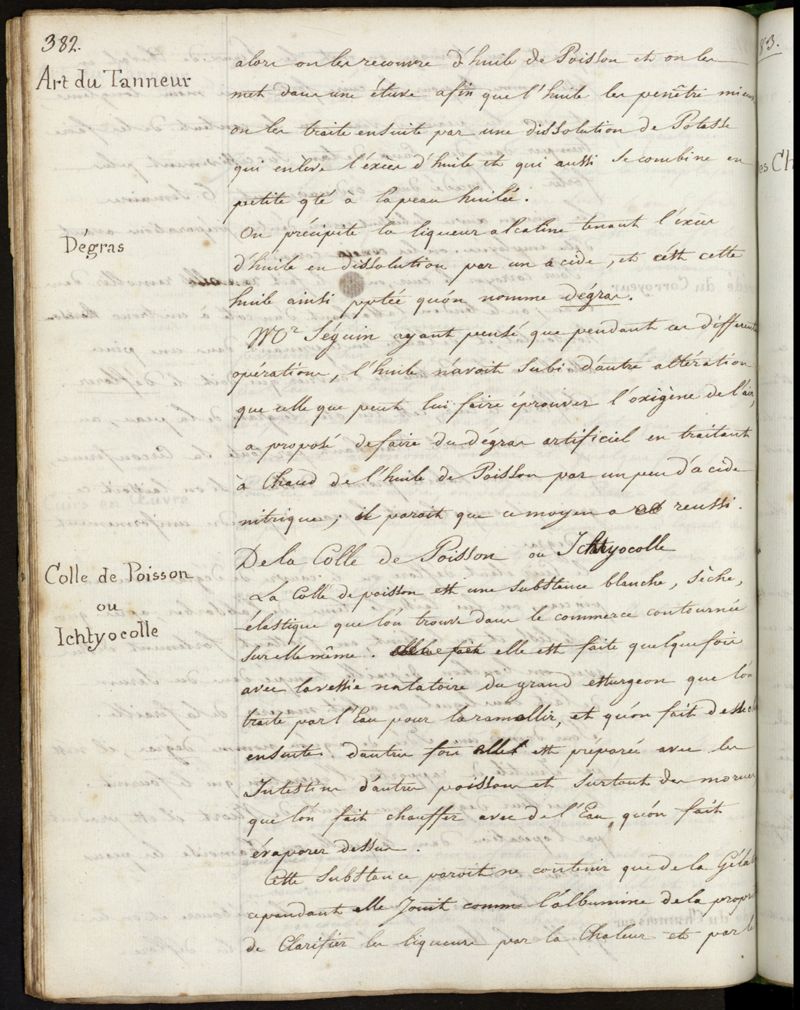 382.
Art du Tanneur
alors on les recouvre d'huile de Poisson et on les
met dans une étuve afin que l'huile les penêtre mieux
on les traite ensuite par une dissolution de Potasse
qui enleve l'éxcès d'huile et qui aussi se combine en
petite qté a la peau huilée.
Dégras
On précipite la liqueur alcaline tenant l'éxcès
d'huile en dissolution par un acide, et c'est cette
huile ainsi pptée qu'on nomme dégras.
Mr Séguin ayant pensé que pendant ces différentes
operations, l'huile n'avoit subi d'autre altération
que celle que peut lui faire éprouver l'oxigène de l'air,
a proposé de faire du dégras artificiel en traitant
à Chaud de l'huile de Poisson par un peu d'acide
nitrique; il paroit que ce moyen a reussi.
Colle de Poisson
ou
Ichtyocolle
De la Colle de Poisson ou Ichtyocolle
La Colle de poisson est une substance blanche, sèche,
élastique que l'on trouve dans le commerce contournée
sur elle même. elle est faite quelquefois
avec la vessie natatoire du grand esturgeon que l'on
traite par l'Eau pour la ramollir, et qu'on fait dessecher
ensuite. d'autre fois elle est préparée avec les
Intestins d'autres poissons et surtout des morues
que l'on fait chauffer avec de l'Eau qu'on fait
évaporer dessus.
Cette Substance paroit ne contenir que de la Géla
cependant elle Jouit comme l'albumine de la propri
de Clarifier les liqueurs par la Chaleur et par le
83.
es Ch